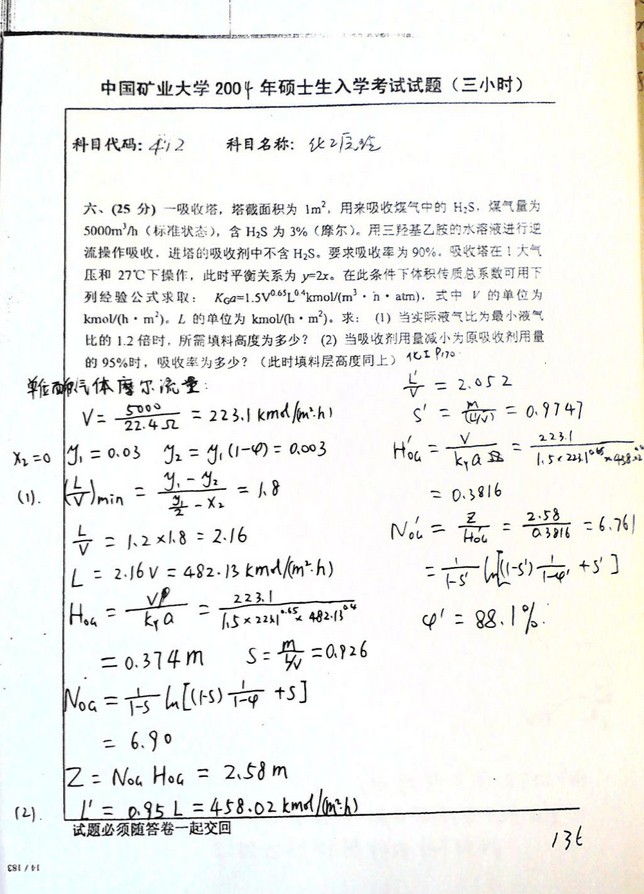 中国矿业大学2004年硕士生入学考试试题（三小时）
科目代码：412 科目名称：化工原理
六、(25 分) 一吸收塔，塔截面积为 1m²，用来吸收煤气中的 H₂S．煤气量为
5000m³/h（标准状态），含 H₂S 为 3%（摩尔）。用三羟基乙胺的水溶液进行逆
流操作吸收，进塔的吸收剂中不含 H₂S。要求吸收率为 90%，吸收塔在 1 大气
压和 27℃下操作，此时平衡关系为 y=2x。在此条件下体积传质总系数可用下
列经验公式求取： K_Ga=1.5V^0.65L^0.4kmol/(m³·h·atm)，式中 V 的单位为
kmol/(h·m²)。L 的单位为 kmol/(h·m²)。求：(1) 当实际液气比为最小液气
比的 1.2 倍时，所需填料高度为多少？(2) 当吸收剂用量减小为原吸收剂用量
的 95%时，吸收率为多少？（此时填料层高度同上） 化工 P170.
气体摩尔流量：
V = 5000/22.4Ω = 223.1 kmol/(m²·h)
x₂=0 y₁ = 0.03 y₂ = y₁(1-φ) = 0.003
(1). (L/V)min = (y₁ - y₂)/(y₁/2 - x₂) = 1.8
L/V = 1.2×1.8 = 2.16
L = 2.16V = 482.13 kmol/(m²·h)
H_OG = VP/(k_Y a) = 223.1/(1.5×223.1^0.65×482.13^0.4)
= 0.374m S = m/(L/V) = 0.926
N_OG = 1/(1-S) ln[(1-S) 1/(1-φ) + S]
= 6.90
Z = N_OG H_OG = 2.58m
(2). L' = 0.95L = 458.02 kmol/(m²·h)
L'/V = 2.052
S' = m/(L'/V) = 0.9747
H'_OG = V/(k_Y a Ω) = 223.1/(1.5×223.1^0.65×458.02^0.4
= 0.3816
N'_OG = Z/H'_OG = 2.58/0.3816 = 6.761
= 1/(1-S') ln[(1-S') 1/(1-φ') + S']
φ' = 88.1%.
试题必须随答卷一起交回
136
14 / 183